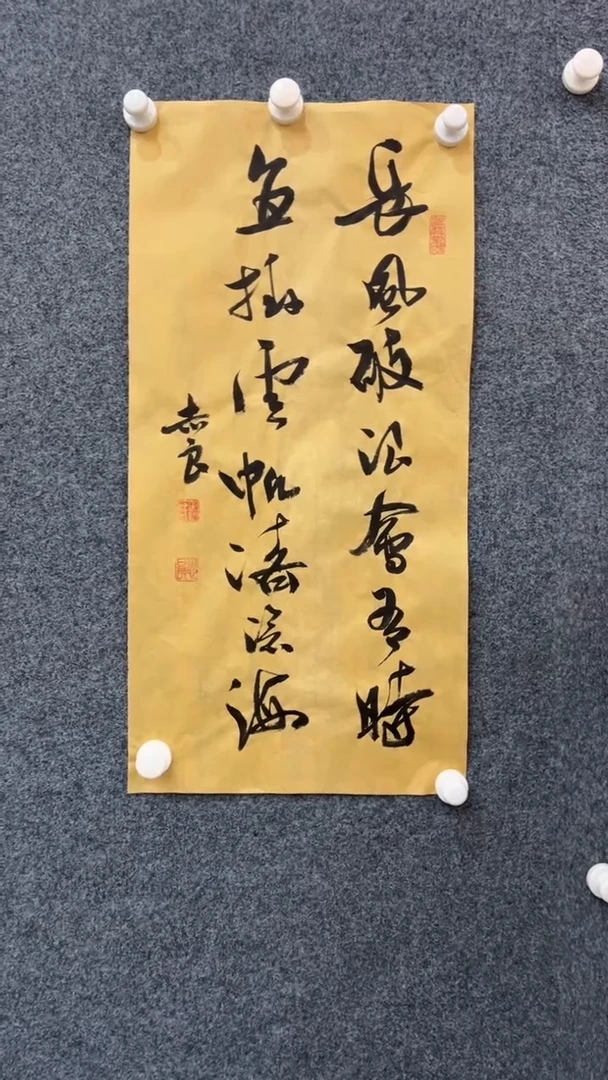 長風破浪會有時
直掛雲帆濟滄海
志良